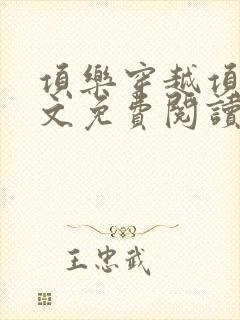 項樂穿越項
文免費閱讀
王忠武